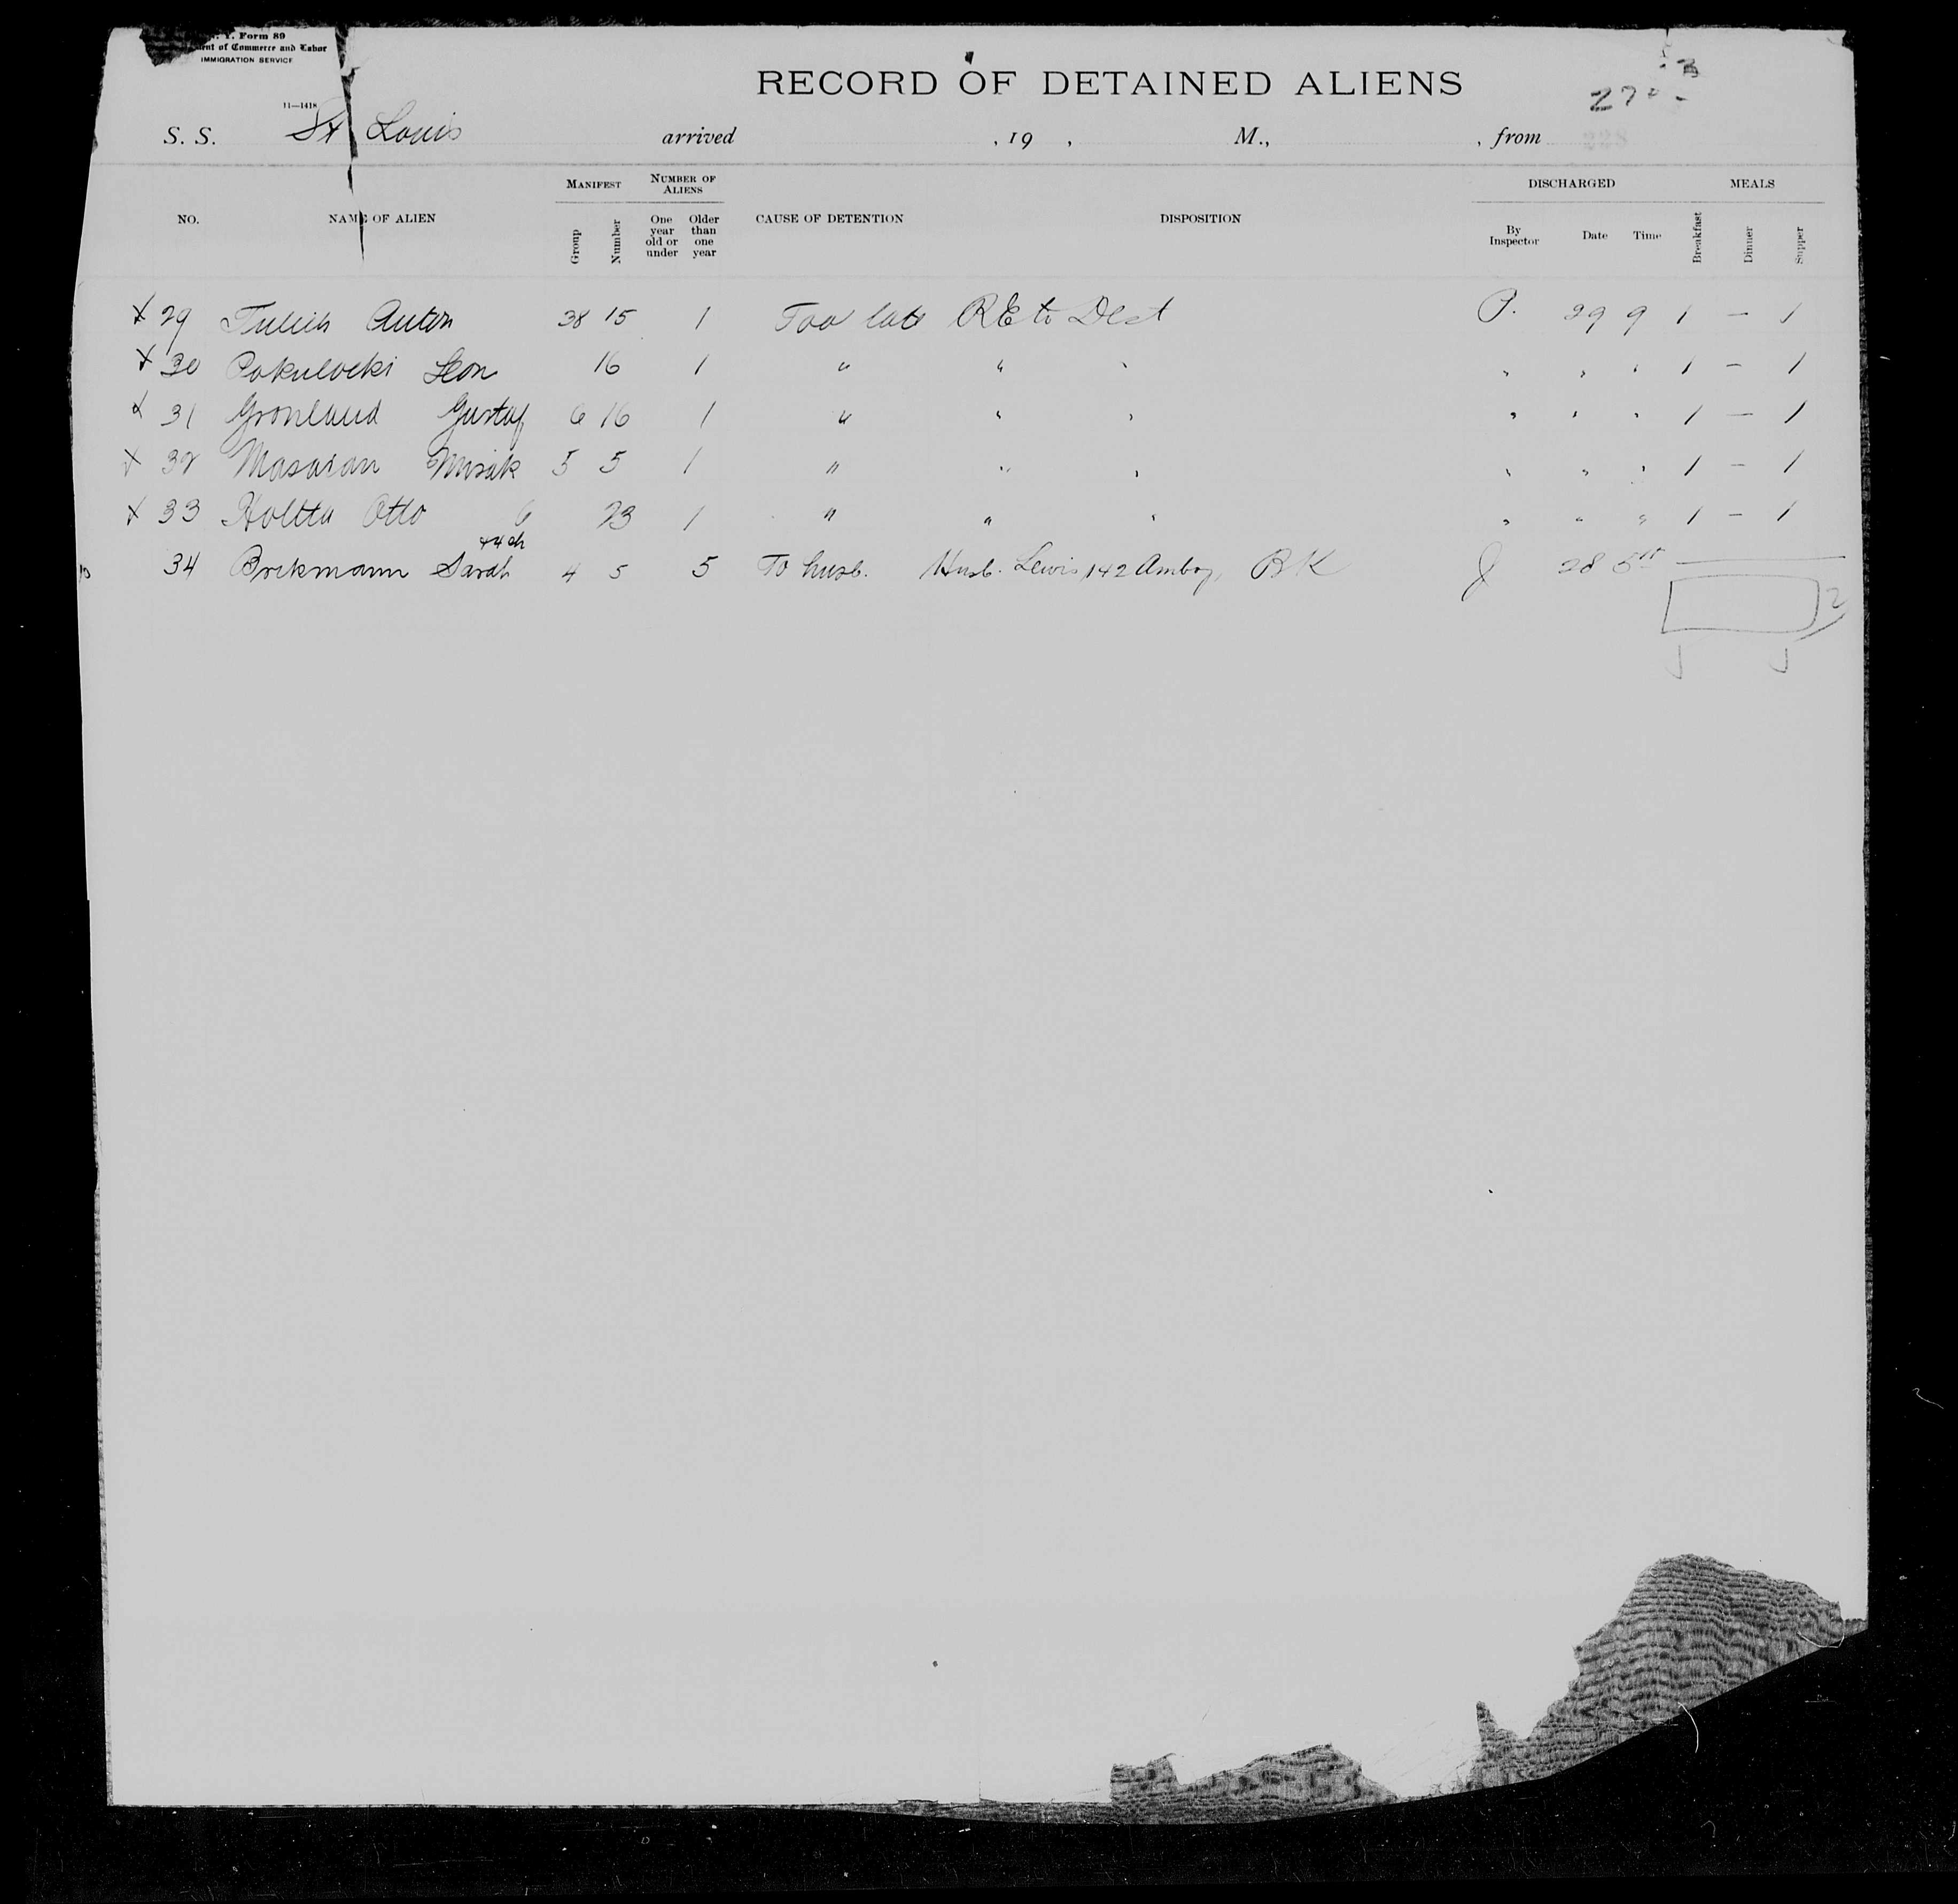 Y. Form 89
ent of Commerce and Labor
IMMIGRATION SERVICE
11—1418
RECORD OF DETAINED ALIENS
S. S. St Louis arrived , 19 , M., , from
NO. NAME OF ALIEN MANIFEST Group Number NUMBER OF ALIENS One year old or under Older than one year CAUSE OF DETENTION DISPOSITION DISCHARGED By Inspector Date Time MEALS Breakfast Dinner Supper
x 29 Anton 38 15 1 Too late RE to Dest P. 29 9 1 — 1
x 30 Leon 16 1 " " " " " " 1 — 1
x 31 Gronlund Gustaf 6 16 1 " " " " " " 1 — 1
x 32 Masaran Misak 5 5 1 " " " " " " 1 — 1
x 33 Holtta Otto 6 23 1 " " " " " " 1 — 1
34 Brekmann Sarah + 4 ch 4 5 5 To husb. Husb. Lewis 142 Amboy, BK J 28 5
2